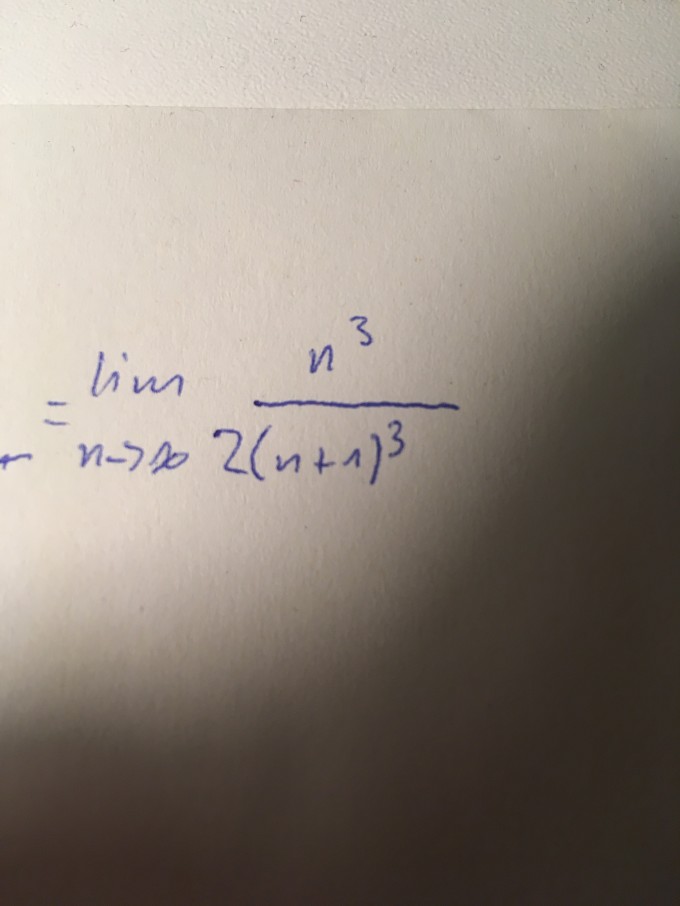 = lim n³
n→∞ 2(n+1)³